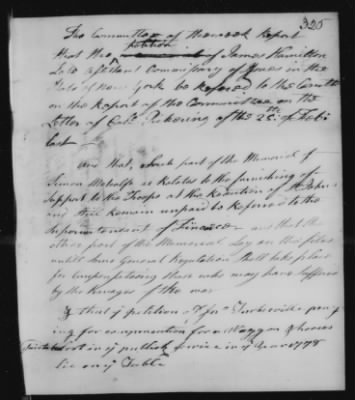 325
The Committee of the week Report
that the petition of James Hamilton
late assistant Commissary of Issues in the
State of New York be Refered to the Comtte
on the Report of the Committee on the
Letter of Colo. Pickering of the 28th. of Feb.
last —
and that, Such part of the Memorial of
Simon Metcalfe as Relates to the furnishing of
Support to the Troops at the Reduction of St. Johns
and still Remain unpaid be Refered to the
Superintendent of Finance — and that the
other part of the Memorial Lay on the files
untill Some General Regulation Shall take place
for Compensating those who may have Suffered
by the Ravages of the war
& that ye petition of Jno. pray
ing for compensation for a Waggon & horses
lost in ye publick service in ye year 1778
lie on ye Table